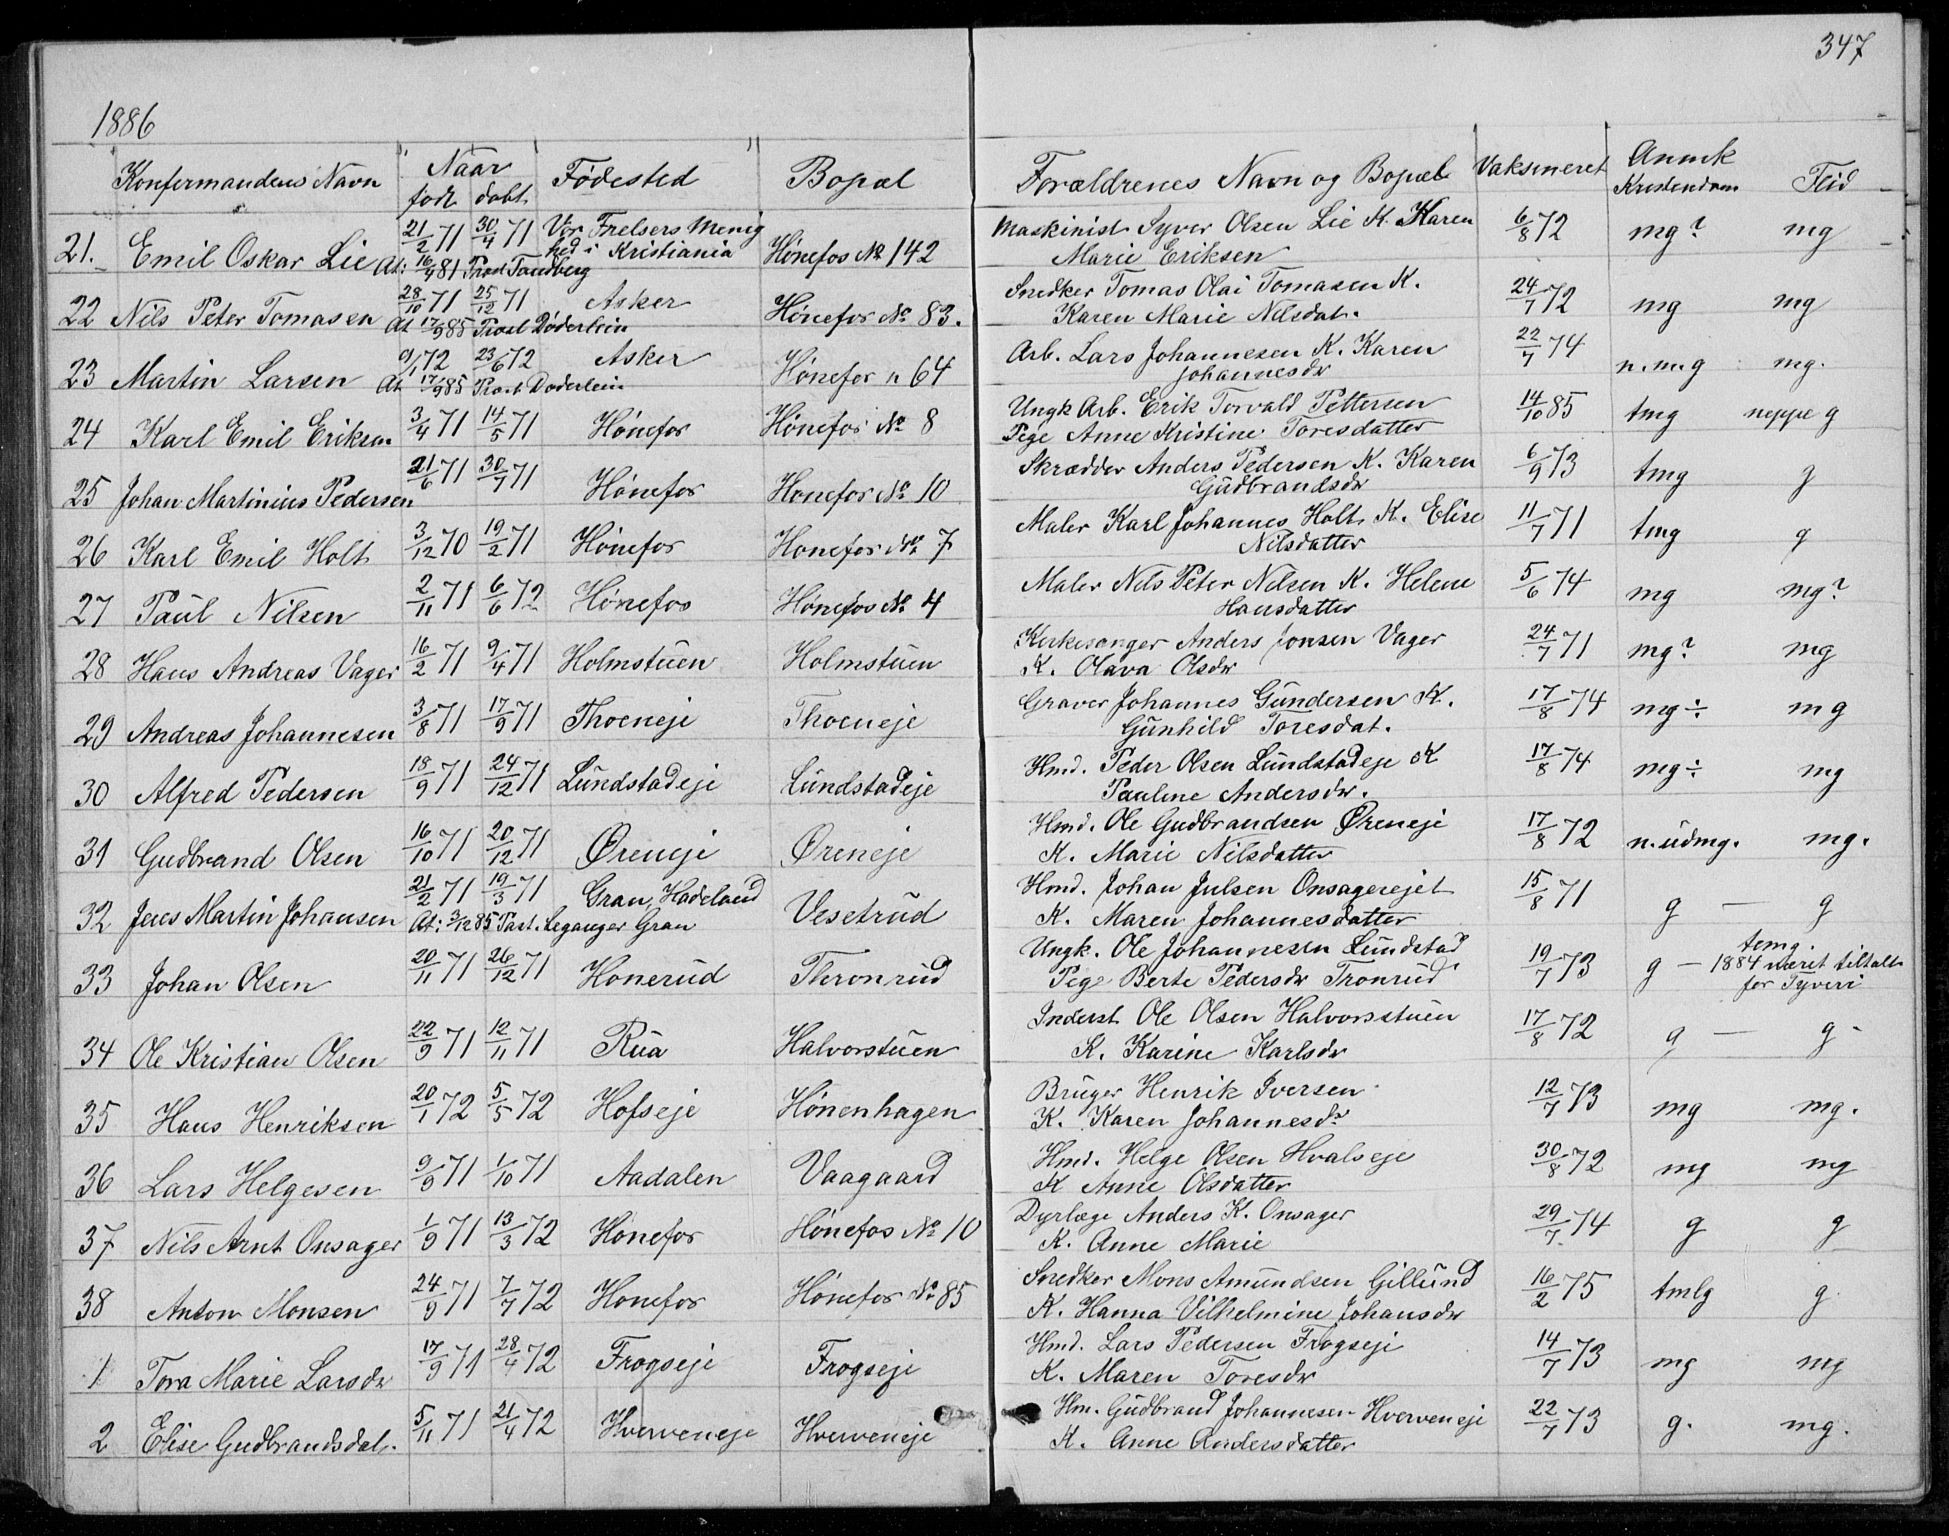 347
1886
Konfermandens Navn | Naar født døbt | Fødested | Bopæl | Forældrenes Navn og Bopæl | Vaksineret | Anmk Kristendom | Flid
21. Emil Oskar Lie | 21/2 71 | 30/4 71 | Vor Frelsers Menighed i Kristiania | Hönefos No 142 | Maskinist Syver Olsen Lie K. Karen | 6/8 72 | mg? | mg
At: 16/4 81 Prost Tandberg | Marie Eriksen
22 Nils Peter Tomasen | 28/10 71 | 25/12 71 | Asker | Hönefos No 83. | Snedker Tomas Olai Tomasen K. | 24/7 72 | mg | mg
At 17/9 85 Prost Døderlein | Karen Marie Nilsdat.
23 Martin Larsen | 9/1 72 | 23/6 72 | Asker | Hönefos " 64 | Arb. Lars Johannesen K. Karen | 22/7 74 | n.m.g | mg.
At 17/9 85 Prost Døderlein | Johannesdr
24 Karl Emil Eriksen | 3/4 71 | 14/5 71 | Hönefos | Hönefos No 8 | Ungk Arb. Erik Torvald Pettersen | 14/10 85 | tmg | neppe g
Pige Anne Kristine Toresdatter
25 Johan Martinius Pedersen | 21/6 71 | 30/7 71 | Hönefos | Honefos No 10 | Skrædder Anders Pedersen K. Karen | 6/9 73 | tmg | g
Gudbrandsdr
26 Karl Emil Holt | 3/12 70 | 19/2 71 | Hönefos | Honefos No 7 | Maler Karl Johannes Holt K. Elise | 11/7 71 | tmg | g
Nilsdatter
27 Paul Nilsen | 2/11 71 | 6/6 72 | Hönefos | Hönefos No 4 | Maler Nils Peter Nilsen K. Helene | 5/6 74 | mg | mg?
Hansdatter
28 Hans Andreas Vager | 16/2 71 | 9/4 71 | Holmstuen | Holmstuen | Kirkesanger Anders Jonsen Vager | 24/7 71 | mg? | mg
K. Olava Olsdr
29 Andreas Johannesen | 3/8 71 | 17/9 71 | Thoeneje | Thoeneje | Graver Johannes Gundersen K. | 17/8 74 | mg÷ | mg
Gunhild Toresdat.
30 Alfred Pedersen | 18/9 71 | 24/12 71 | Lundstadeje | Lundstadeje | Hmd. Peder Olsen Lundstadeje K | 17/8 74 | mg÷ | mg
Pauline Andersdr.
31 Gudbrand Olsen | 16/10 71 | 20/12 71 | Øreneje | Øreneje | Hmd. Ole Gudbrandsen Øreneje | 17/8 72 | n. udmg. | mg.
K. Marie Nilsdatter
32 Jens Martin Johansen | 21/2 71 | 19/3 71 | Gran, Hadeland | Vesetrud | Hmd. Johan Julsen Onsagerejet | 15/8 71 | g — | g
At: 3/12 85 Past. Leganger Gran | K. Maren Johannesdatter
33 Johan Olsen | 20/11 71 | 26/12 71 | Honerud | Thronrud | Ungk. Ole Johannesen Lundstad | 19/7 73 | g — | temg.
Pige Berte Pedersdr Tronrud | 1884 været tiltalt for Tyveri
34 Ole Kristian Olsen | 22/9 71 | 12/11 71 | Rua | Halvorstuen | Inderst Ole Olsen Halvorsstuen | 17/8 72 | g — | g-
K. Karine Karlsdr
35 Hans Henriksen | 20/1 72 | 5/5 72 | Hofseje | Hönenhagen | Bruger Henrik Iversen | 12/7 73 | mg | mg.
K. Karen Johannesdr
36 Lars Helgesen | 9/9 71 | 1/10 71 | Aadalen | Vaagaard | Hmd. Helge Olsen Hvalseje | 30/8 72 | mg | mg
K Anne Olsdatter
37 Nils Arnt Onsager | 1/9 71 | 13/3 72 | Honefos | Hönefos No 10 | Dyrlæge Anders K. Onsager | 29/7 74 | g | g
K. Anne Marie
38 Anton Monsen | 24/9 71 | 7/7 72 | Honefos | Hönefos No 85 | Snedker Mons Amundsen Gillund | 16/2 75 | tmlg | g
K. Hanna Vilhelmine Johansdr
1 Tora Marie Larsdr | 17/9 71 | 28/4 72 | Frogseje | Frogseje | Hmd. Lars Pedersen Frogseje | 14/7 73 | mg | mg
K. Maren Toresdr
2 Elise Gudbrandsdat. | 5/11 71 | 21/4 72 | Hverveneje | Hverveneje | Hm. Gudbrand Johannesen Hverveneje | 22/7 73 | g. | mg.
K. Anne Andersdatter